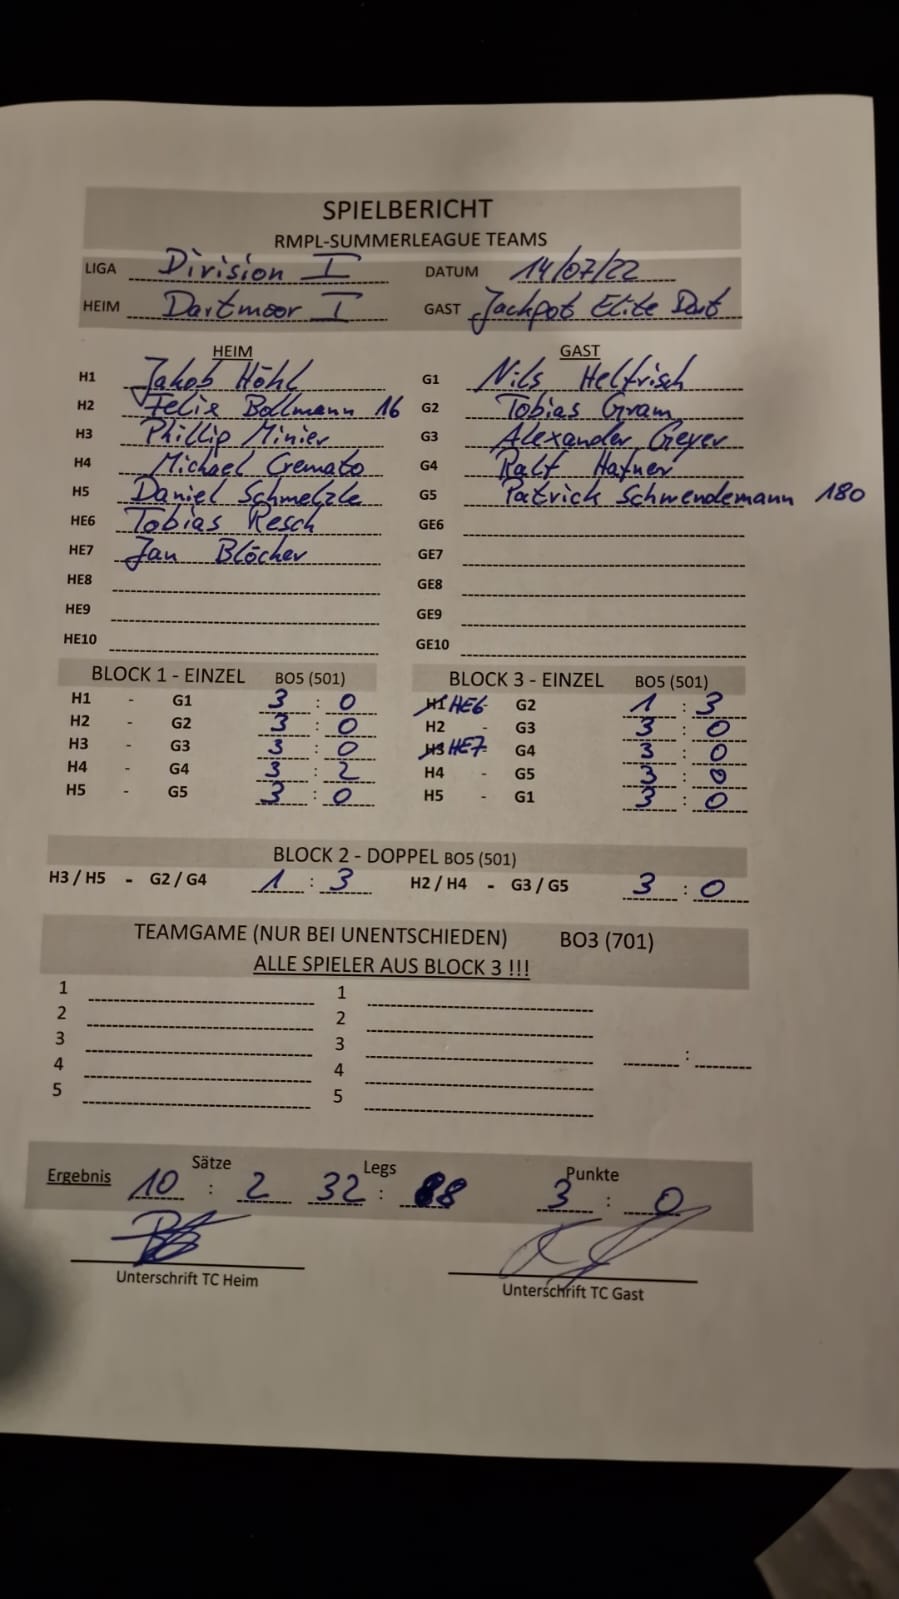 SPIELBERICHT
RMPL-SUMMERLEAGUE TEAMS
LIGA Division I DATUM 14/07/22
HEIM Dartmoor I GAST Jackpot Elite Dart
HEIM GAST
H1 Jakob Höhl G1 Nils Helfrisch
H2 Felix Bollmann 16 G2 Tobias Gram
H3 Phillip Minier G3 Alexander Geyer
H4 Michael Cremato G4 Ralf Hafner
H5 Daniel Schmelzle G5 Patrick Schwendemann 180
HE6 Tobias Resch GE6
HE7 Jan Blöcher GE7
HE8 GE8
HE9 GE9
HE10 GE10
BLOCK 1 - EINZEL BO5 (501) BLOCK 3 - EINZEL BO5 (501)
H1 - G1 3 : 0 H1 HE6 G2 1 : 3
H2 - G2 3 : 0 H2 - G3 3 : 0
H3 - G3 3 : 0 H3 HE7 G4 3 : 0
H4 - G4 3 : 2 H4 - G5 3 : 0
H5 - G5 3 : 0 H5 - G1 3 : 0
BLOCK 2 - DOPPEL BO5 (501)
H3 / H5 - G2 / G4 1 : 3 H2 / H4 - G3 / G5 3 : 0
TEAMGAME (NUR BEI UNENTSCHIEDEN) BO3 (701)
ALLE SPIELER AUS BLOCK 3 !!!
1 1
2 2
3 3
4 4 :
5 5
Sätze Legs Punkte
Ergebnis 10 : 2 32 : 8 3 : 0
Unterschrift TC Heim Unterschrift TC Gast